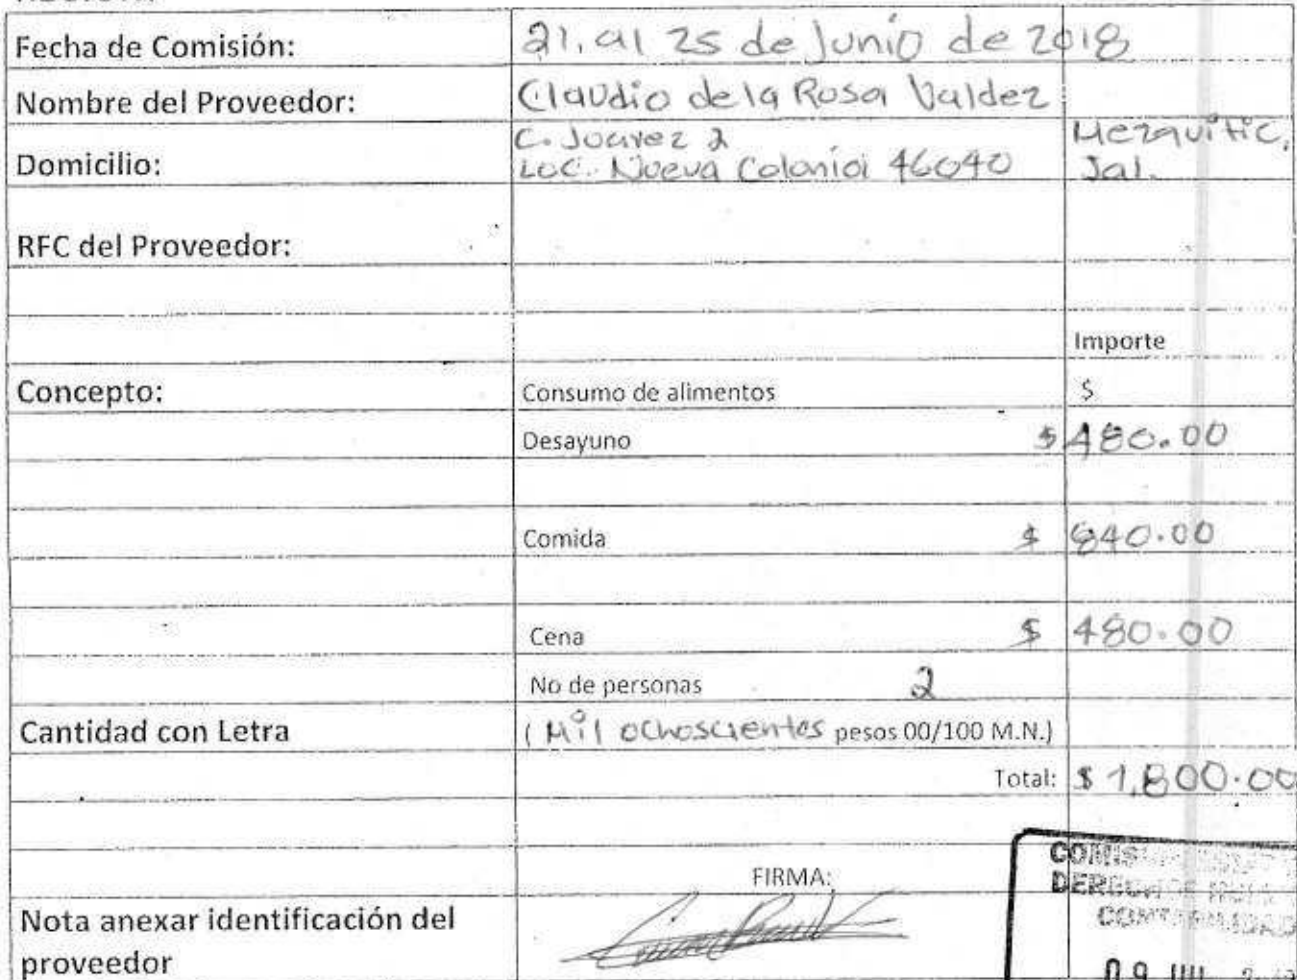 Fecha de Comisión: 21, al 25 de Junio de 2018
Nombre del Proveedor: Claudio de la Rosa Valdez
C. Juarez 2 Mezquitic,
Domicilio: Loc. Nueva Colonia 46040 Jal.
RFC del Proveedor:
Importe
Concepto: Consumo de alimentos $
Desayuno $480.00
Comida $ 840.00
Cena $ 480.00
No de personas 2
Cantidad con Letra (Mil ochoscientos pesos 00/100 M.N.)
Total: $ 1,800.00
FIRMA:
Nota anexar identificación del
proveedor
09 JUL